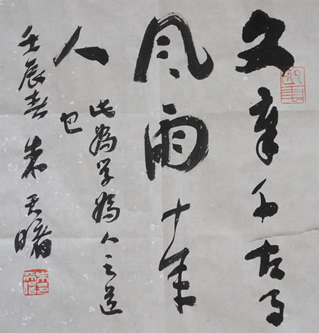 文章千古事
风雨十年
人
此為学為人之道
也
壬辰春朱天曙